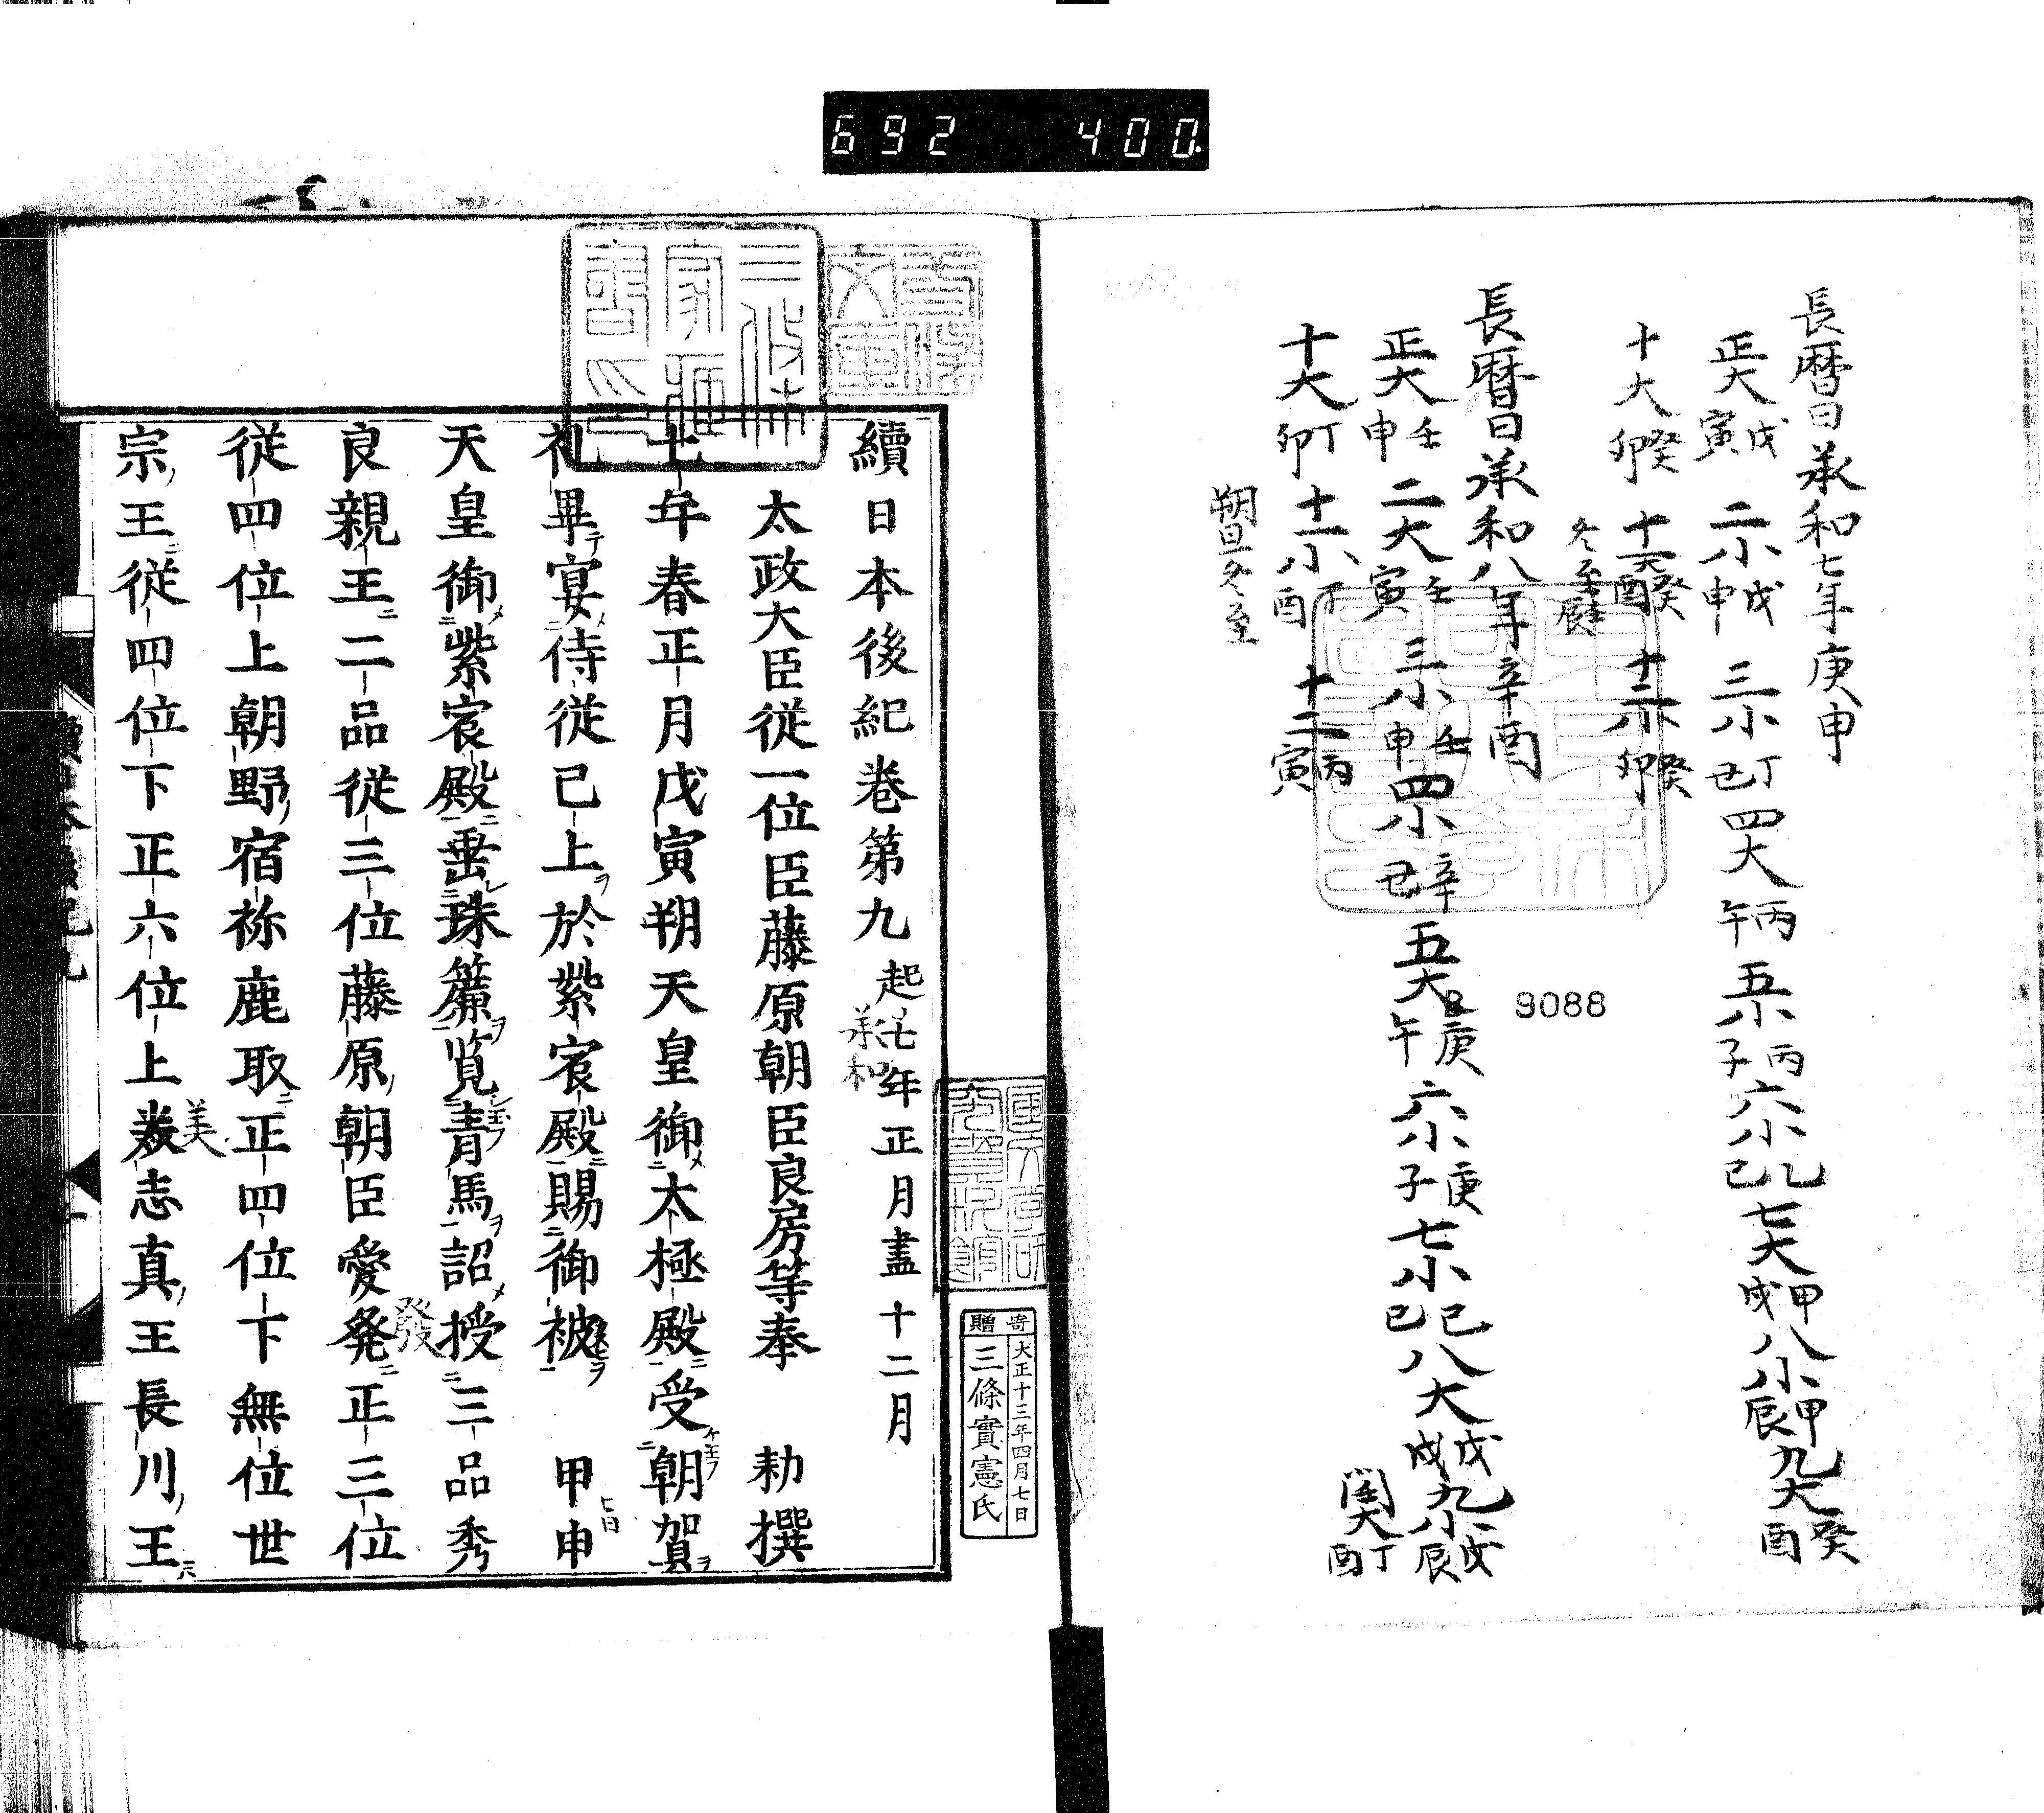 692 400.
長暦曰承和七年庚申
正大戊寅 二小戊申 三小丁巳 四大丙午 五小丙子 六小乙巳 七大甲戌 八小甲辰 九大癸酉
十大癸卯 十一大癸酉 十二小癸卯
長暦曰承和八年辛酉
正大壬申 二大壬寅 三小壬申 四小辛巳 五大庚午 六小庚子 七小己巳 八大戊戌 九小戊辰 閏大丁酉
十大丁卯 十一小丁酉 十二丙寅
朔旦冬至
9088
寄贈
大正十三年四月七日
三條實憲氏
續日本後紀巻第九 起承和七年正月盡十二月
太政大臣従一位臣藤原朝臣良房等奉 勅撰
七年春正月戊寅朔天皇御太極殿受朝賀
礼畢宴侍従已上於紫宸殿賜御被 甲申
七日
天皇御紫宸殿垂珠簾覧青馬詔授三品秀
良親王二品従三位藤原朝臣愛発正三位
發
従四位上朝野宿祢鹿取正四位下無位世
宗王従四位下正六位上美志真王長川王
美